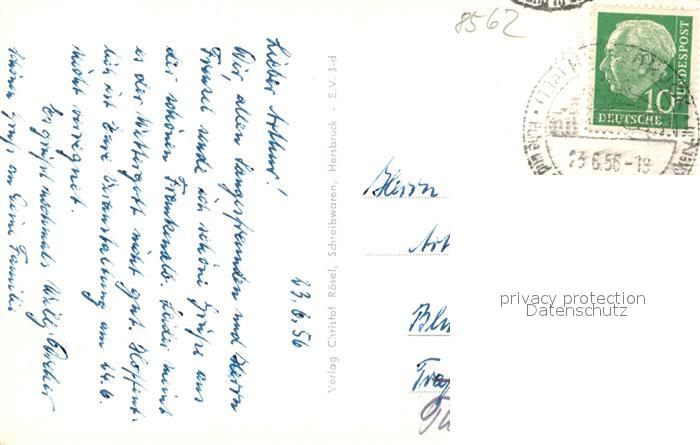 8562
10
DEUTSCHE
BUNDESPOST
23.6.56-19
23.6.56
Lieber Arthur!
Wir allen Sangesfreunden und Herrn
Frenzel sende ich schöne Grüße aus
der schönen Frankenalb. Leider meint
es der Wettergott nicht gut. Hoffent-
lich ist Eure Veranstaltung am 24.6.
nicht verregnet.
Es grüßt nochmals Willy
schönen Gruß an Deine Familie
Verlag Christof Rösel, Schreibwaren, Hersbruck - E.V. 3-d
Herrn
Art
Blu
privacy protection
Datenschutz